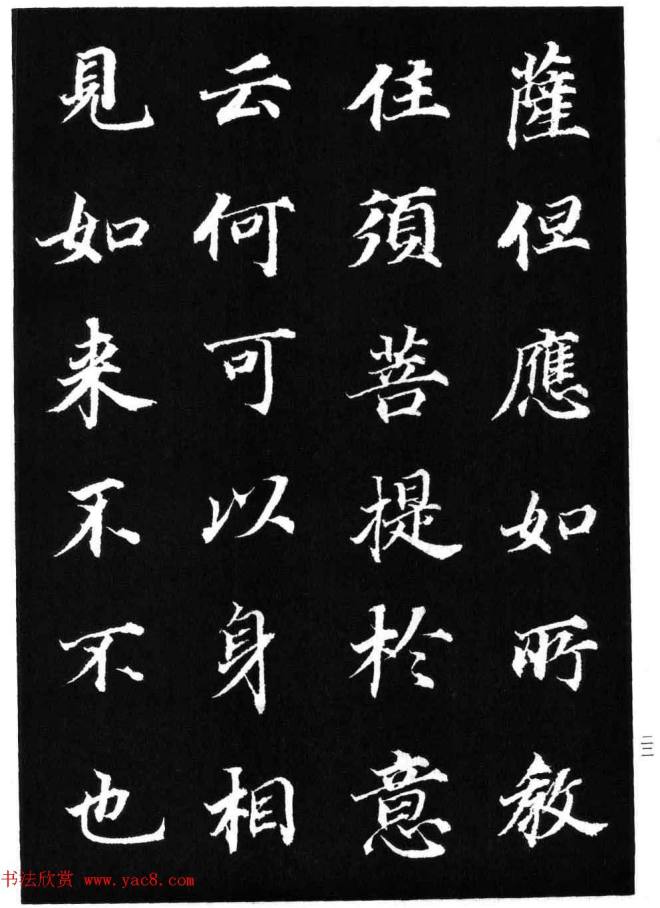 薩但應如所教
住須菩提於意
云何可以身相
見如来不不也
二二
书法欣赏 www.yac8.com